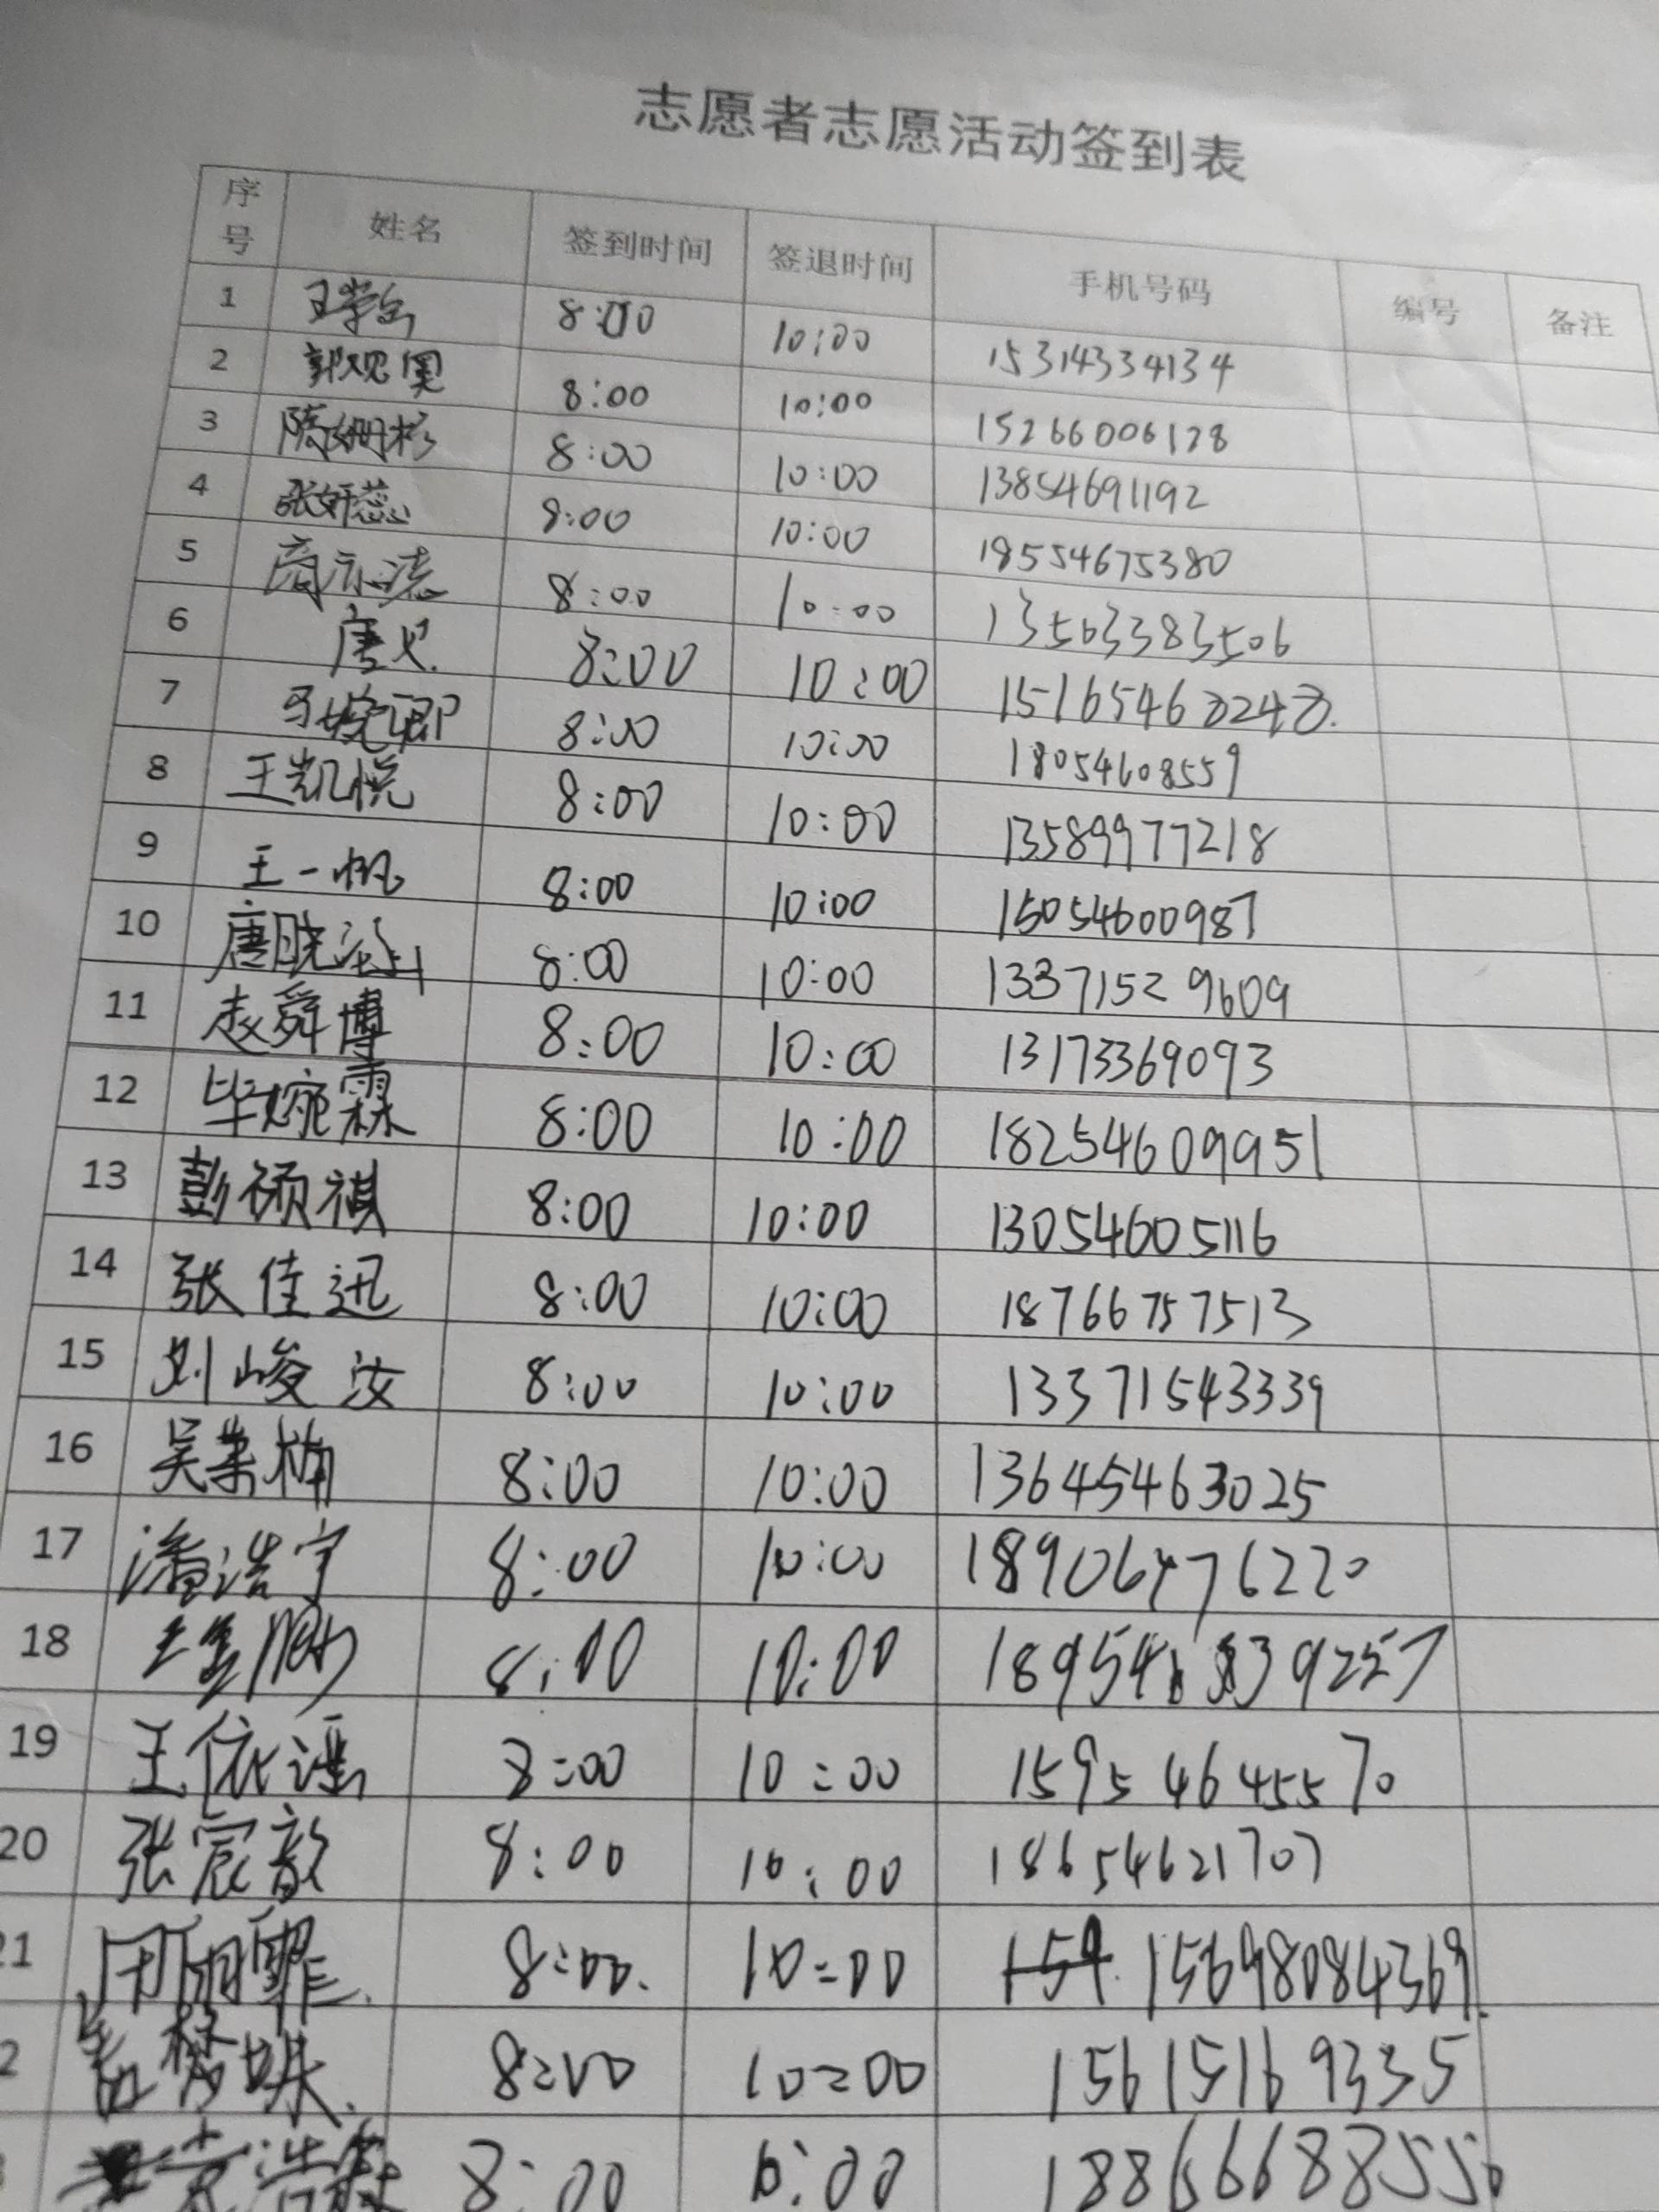 志愿者志愿活动签到表
序号 姓名 签到时间 签退时间 手机号码 编号 备注
1 8:00 10:00 15314334134
2 郭观奥 8:00 10:00 15266006128
3 陈姗杉 8:00 10:00 13854691192
4 张妍蕊 8:00 10:00 18554675380
5 8:00 10:00 13563383506
6 8:00 10:00
7 8:00 10:00 18054608559
8 王凯悦 8:00 10:00 13589977218
9 王一帆 8:00 10:00 15054600987
10 8:00 10:00 13371529609
11 赵舜博 8:00 10:00 13173369093
12 毕婉霖 8:00 10:00 18254609951
13 彭硕祺 8:00 10:00 13054605116
14 张佳迅 8:00 10:00 18766757513
15 刘峻汝 8:00 10:00 13371543339
16 吴柰楠 8:00 10:00 13645463025
17 潘浩宇 8:00 10:00 18906476220
18 8:00 10:00
19 王依谣 8:00 10:00 15954645570
20 张宸歆 8:00 10:00 18654621707
21 8:00. 10:00 15698084369.
2 8:00 10:00 15615169335
8:00 10:00 18866688550